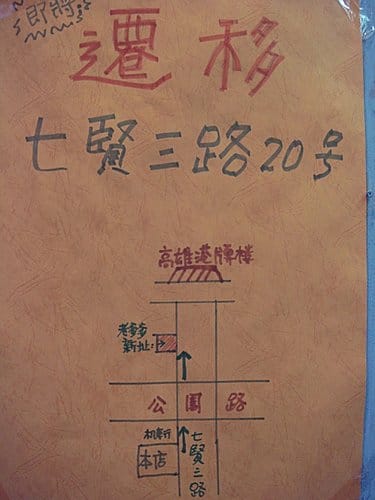 即將
遷移
七賢三路20号
高雄港牌樓
老多多
新址:
公園路
机車行
本店
七賢三路